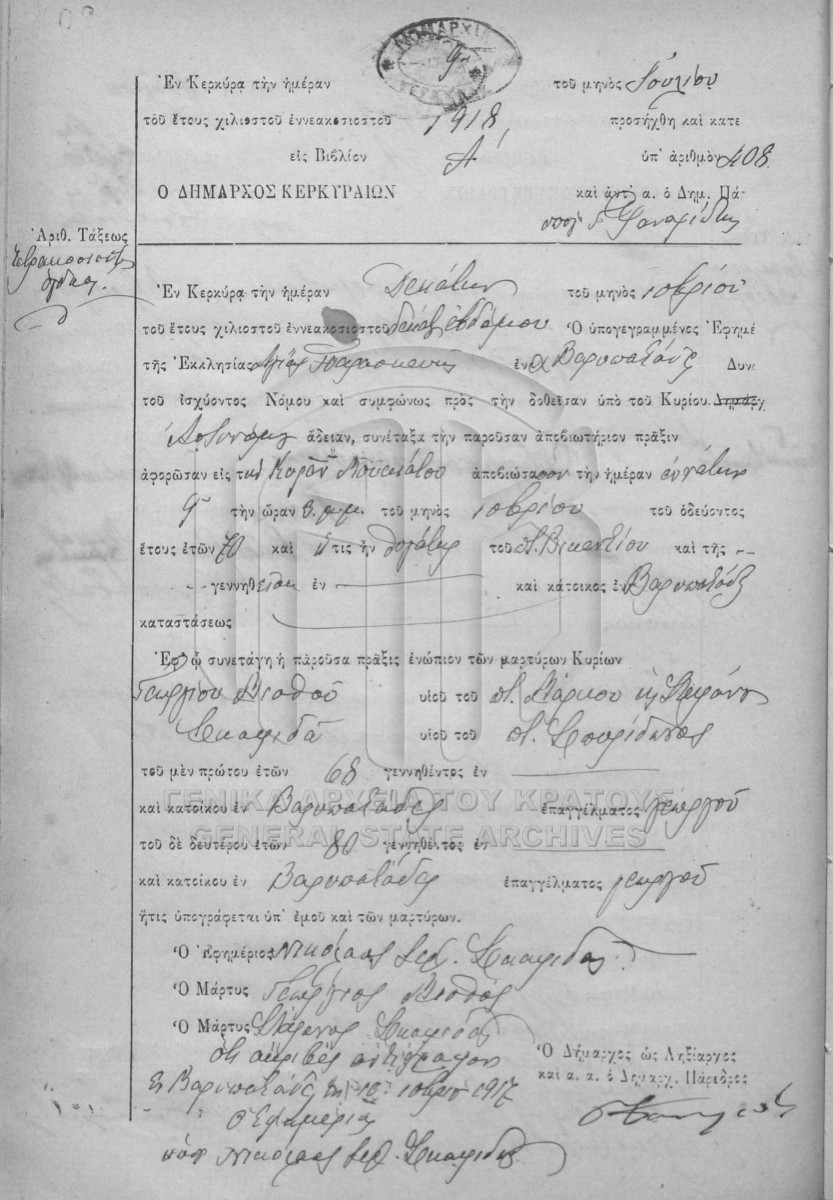 ΔΗΜΑΡΧΙ
ΚΕΡΚΥΡΑ
Ἐν Κερκύρᾳ τὴν ἡμέραν 9ην τοῦ μηνὸς Ἰουλίου
τοῦ ἔτους χιλιοστοῦ ἐννεακοσιοστοῦ 1918, προσήχθη καὶ κατε
εἰς Βιβλίον Α΄ ὑπ' ἀριθμὸν 408
Ο ΔΗΜΑΡΧΟΣ ΚΕΡΚΥΡΑΙΩΝ καὶ ἀντ' α. ὁ Δημ. Πά-
Ἀριθ. Τάξεως
ὀγδοη.
Ἐν Κερκύρᾳ τὴν ἡμέραν Δεκάτην τοῦ μηνὸς 10βρίου
τοῦ ἔτους χιλιοστοῦ ἐννεακοσιοστοῦ δεκάτ ἑβδόμου Ὁ ὑπογεγραμμένος Ἐφημέ
τῆς Ἐκκλησίας Ἁγίας Παρασκευῆς ἐν Βαρυπατάδες Δυνά
τοῦ ἰσχύοντος Νόμου καὶ συμφώνως πρὸς τὴν δοθεῖσαν ὑπὸ τοῦ Κυρίου Δημάρχ
Ἀστυνόμου ἄδειαν, συνέταξα τὴν παροῦσαν ἀποβιωτήριον πρᾶξιν
ἀφορῶσαν εἰς τὴν ἀποβιώσασαν τὴν ἡμέραν ἐννάτην
9ην τὴν ὥραν 8 μ.μ. τοῦ μηνὸς 10βρίου τοῦ ὁδεύοντος
ἔτους ἐτῶν 70 καὶ ἥτις ἦν θυγάτηρ τοῦ π. Βικεντίου καὶ τῆς —
γεννηθεῖσα ἐν — καὶ κάτοικος ἐν Βαρυπατάδες
καταστάσεως
Ἐφ' ᾧ συνετάγη ἡ παροῦσα πρᾶξις ἐνώπιον τῶν μαρτύρων Κυρίων
Γεωργίου υἱοῦ τοῦ π. Μάρκου κ Στεφάνου
Σκαφιδᾶ υἱοῦ τοῦ π. Σπυρίδωνος
τοῦ μὲν πρώτου ἐτῶν 68 γεννηθέντος ἐν —
ΓΕΝΙΚΑ ΑΡΧΕΙΑ ΤΟΥ ΚΡΑΤΟΥΣ
καὶ κατοίκου ἐν Βαρυπατάδες ἐπαγγέλματος γεωργοῦ
GENERAL STATE ARCHIVES
τοῦ δὲ δευτέρου ἐτῶν 80 γεννηθέντος ἐν —
καὶ κατοίκου ἐν Βαρυπατάδες ἐπαγγέλματος γεωργοῦ
ἥτις ὑπογράφεται ὑπ' ἐμοῦ καὶ τῶν μαρτύρων.
Ὁ Ἐφημέριος Νικόλαος Ἱερ. Σκαφιδᾶς
Ὁ Μάρτυς Γεώργιος
Ὁ Μάρτυς Στέφανος Σκαφιδᾶς
ὅτι ἀκριβὲς ἀντίγραφον
Ὁ Δήμαρχος ὡς Ληξίαρχος
καὶ α. α. ὁ Δημαρχ. Πάρεδρος
ἐν Βαρυπατάδες τῇ 10 10βρίου 1917
ὁ Ἐφημέριος
ὑπογ Νικόλαος Ἱερ. Σκαφιδᾶς